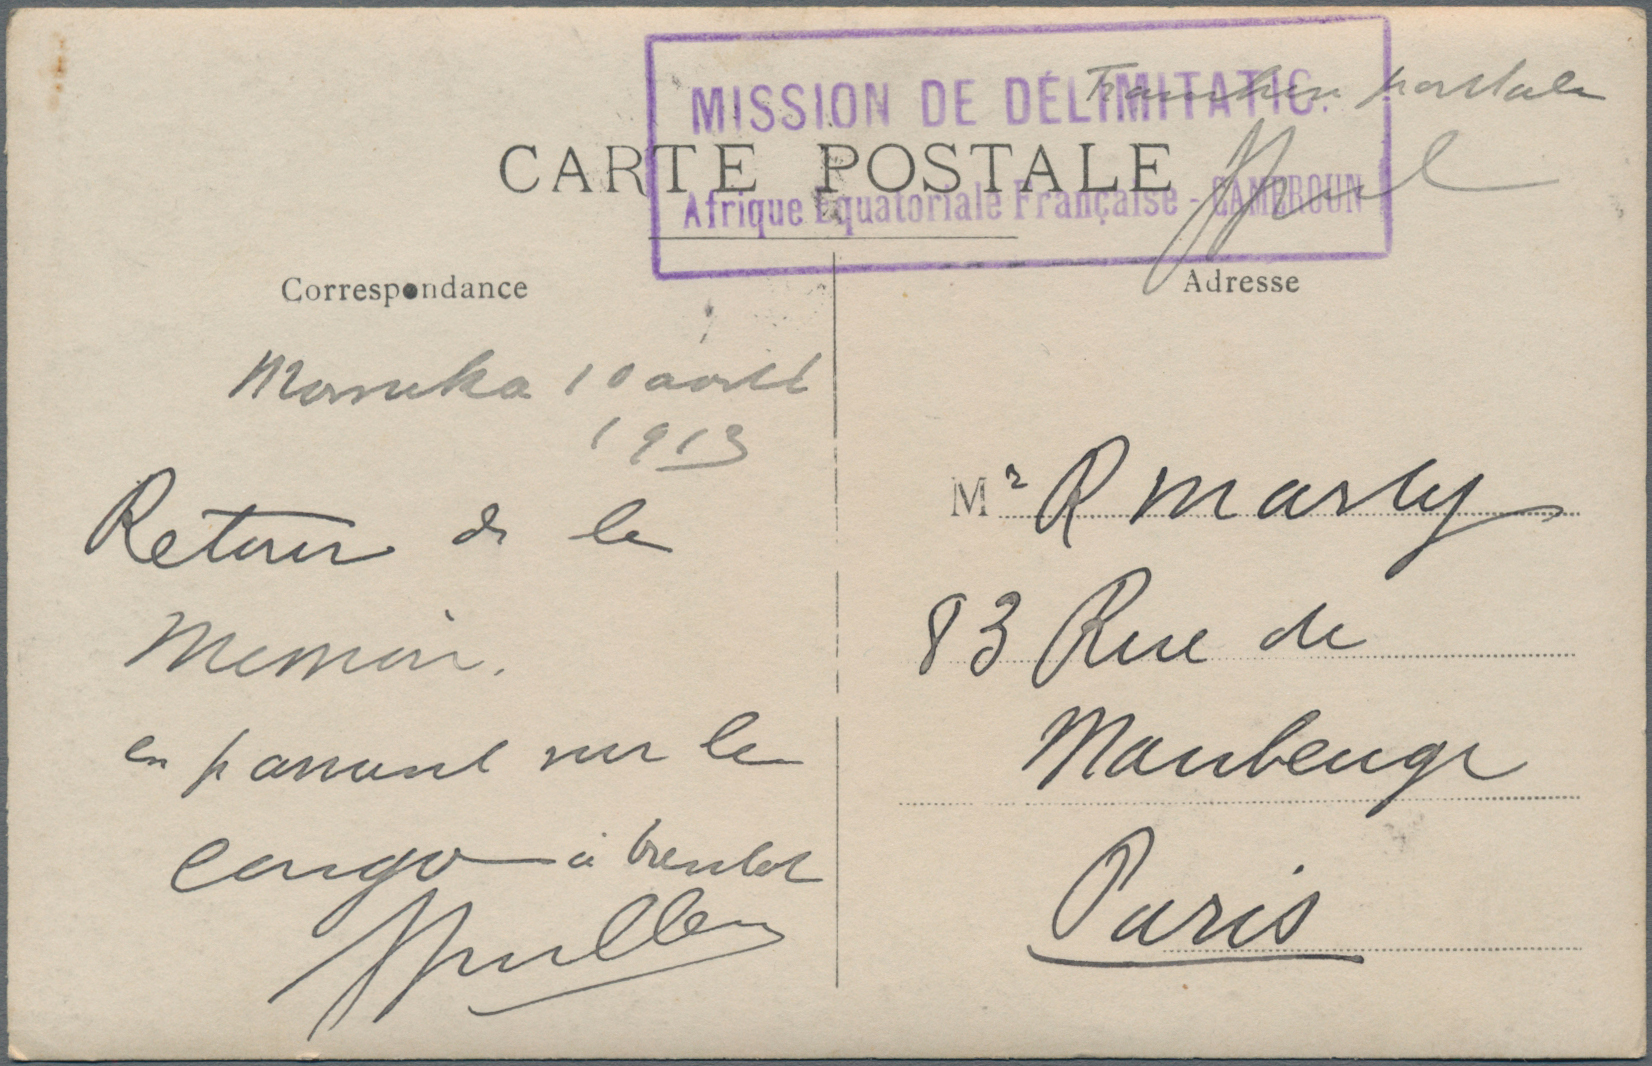 MISSION DE DÉLIMITATIO.
Franchise postale
CARTE POSTALE
Afrique Equatoriale Française - CAMEROUN
Correspondance
Adresse
10 avril
1913
Retour de la
Mission.
en passant sur le
Congo à bientot
Mr R Marly
83 Rue de
Maubeuge
Paris